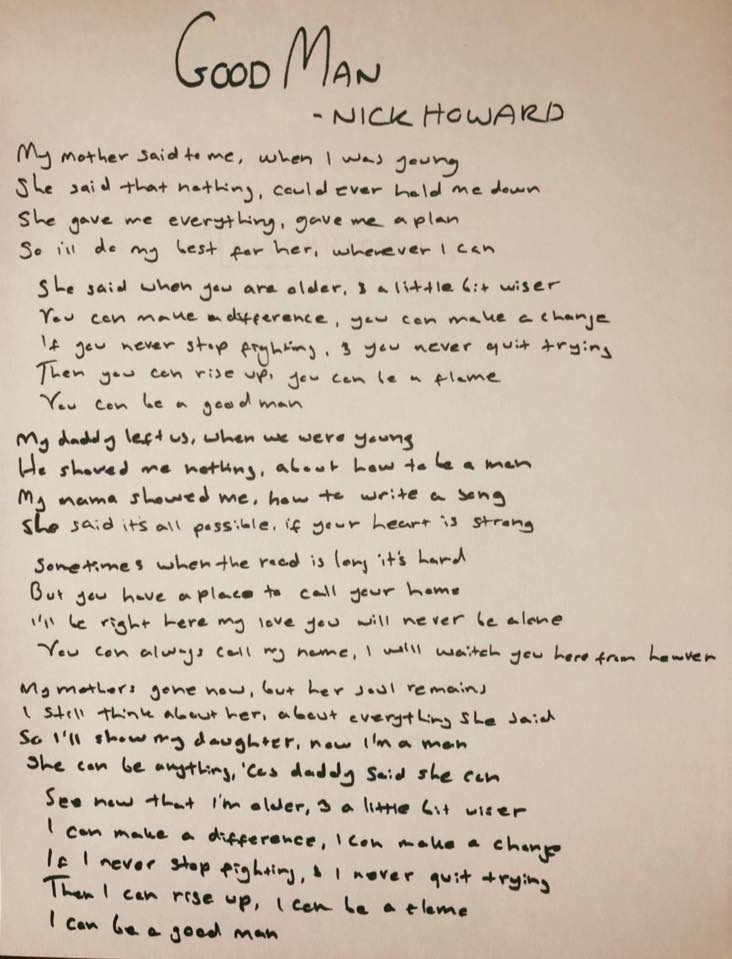 GOOD MAN
- NICK HOWARD
My mother said to me, when I was young
She said that nothing, could ever hold me down
She gave me everything, gave me a plan
So i'll do my best for her, wherever I can
She said when you are older, & a little bit wiser
You can make a difference, you can make a change
If you never stop fighting, & you never quit trying
Then you can rise up, you can be a flame
You can be a good man
My daddy left us, when we were young
He showed me nothing, about how to be a man
My mama showed me, how to write a song
She said it's all possible, if your heart is strong
Sometimes when the road is long it's hard
But you have a place to call your home
I'll be right here my love you will never be alone
You can always call my name, I will waitch you here from heaven
My mothers gone now, but her soul remains
I still think about her, about everything she said
So I'll show my daughter, now I'm a man
She can be anything, 'Cos daddy said she can
See now that I'm older, & a little bit wiser
I can make a difference, I can make a change
If I never stop fighting, & I never quit trying
Then I can rise up, I can be a flame
I can be a good man